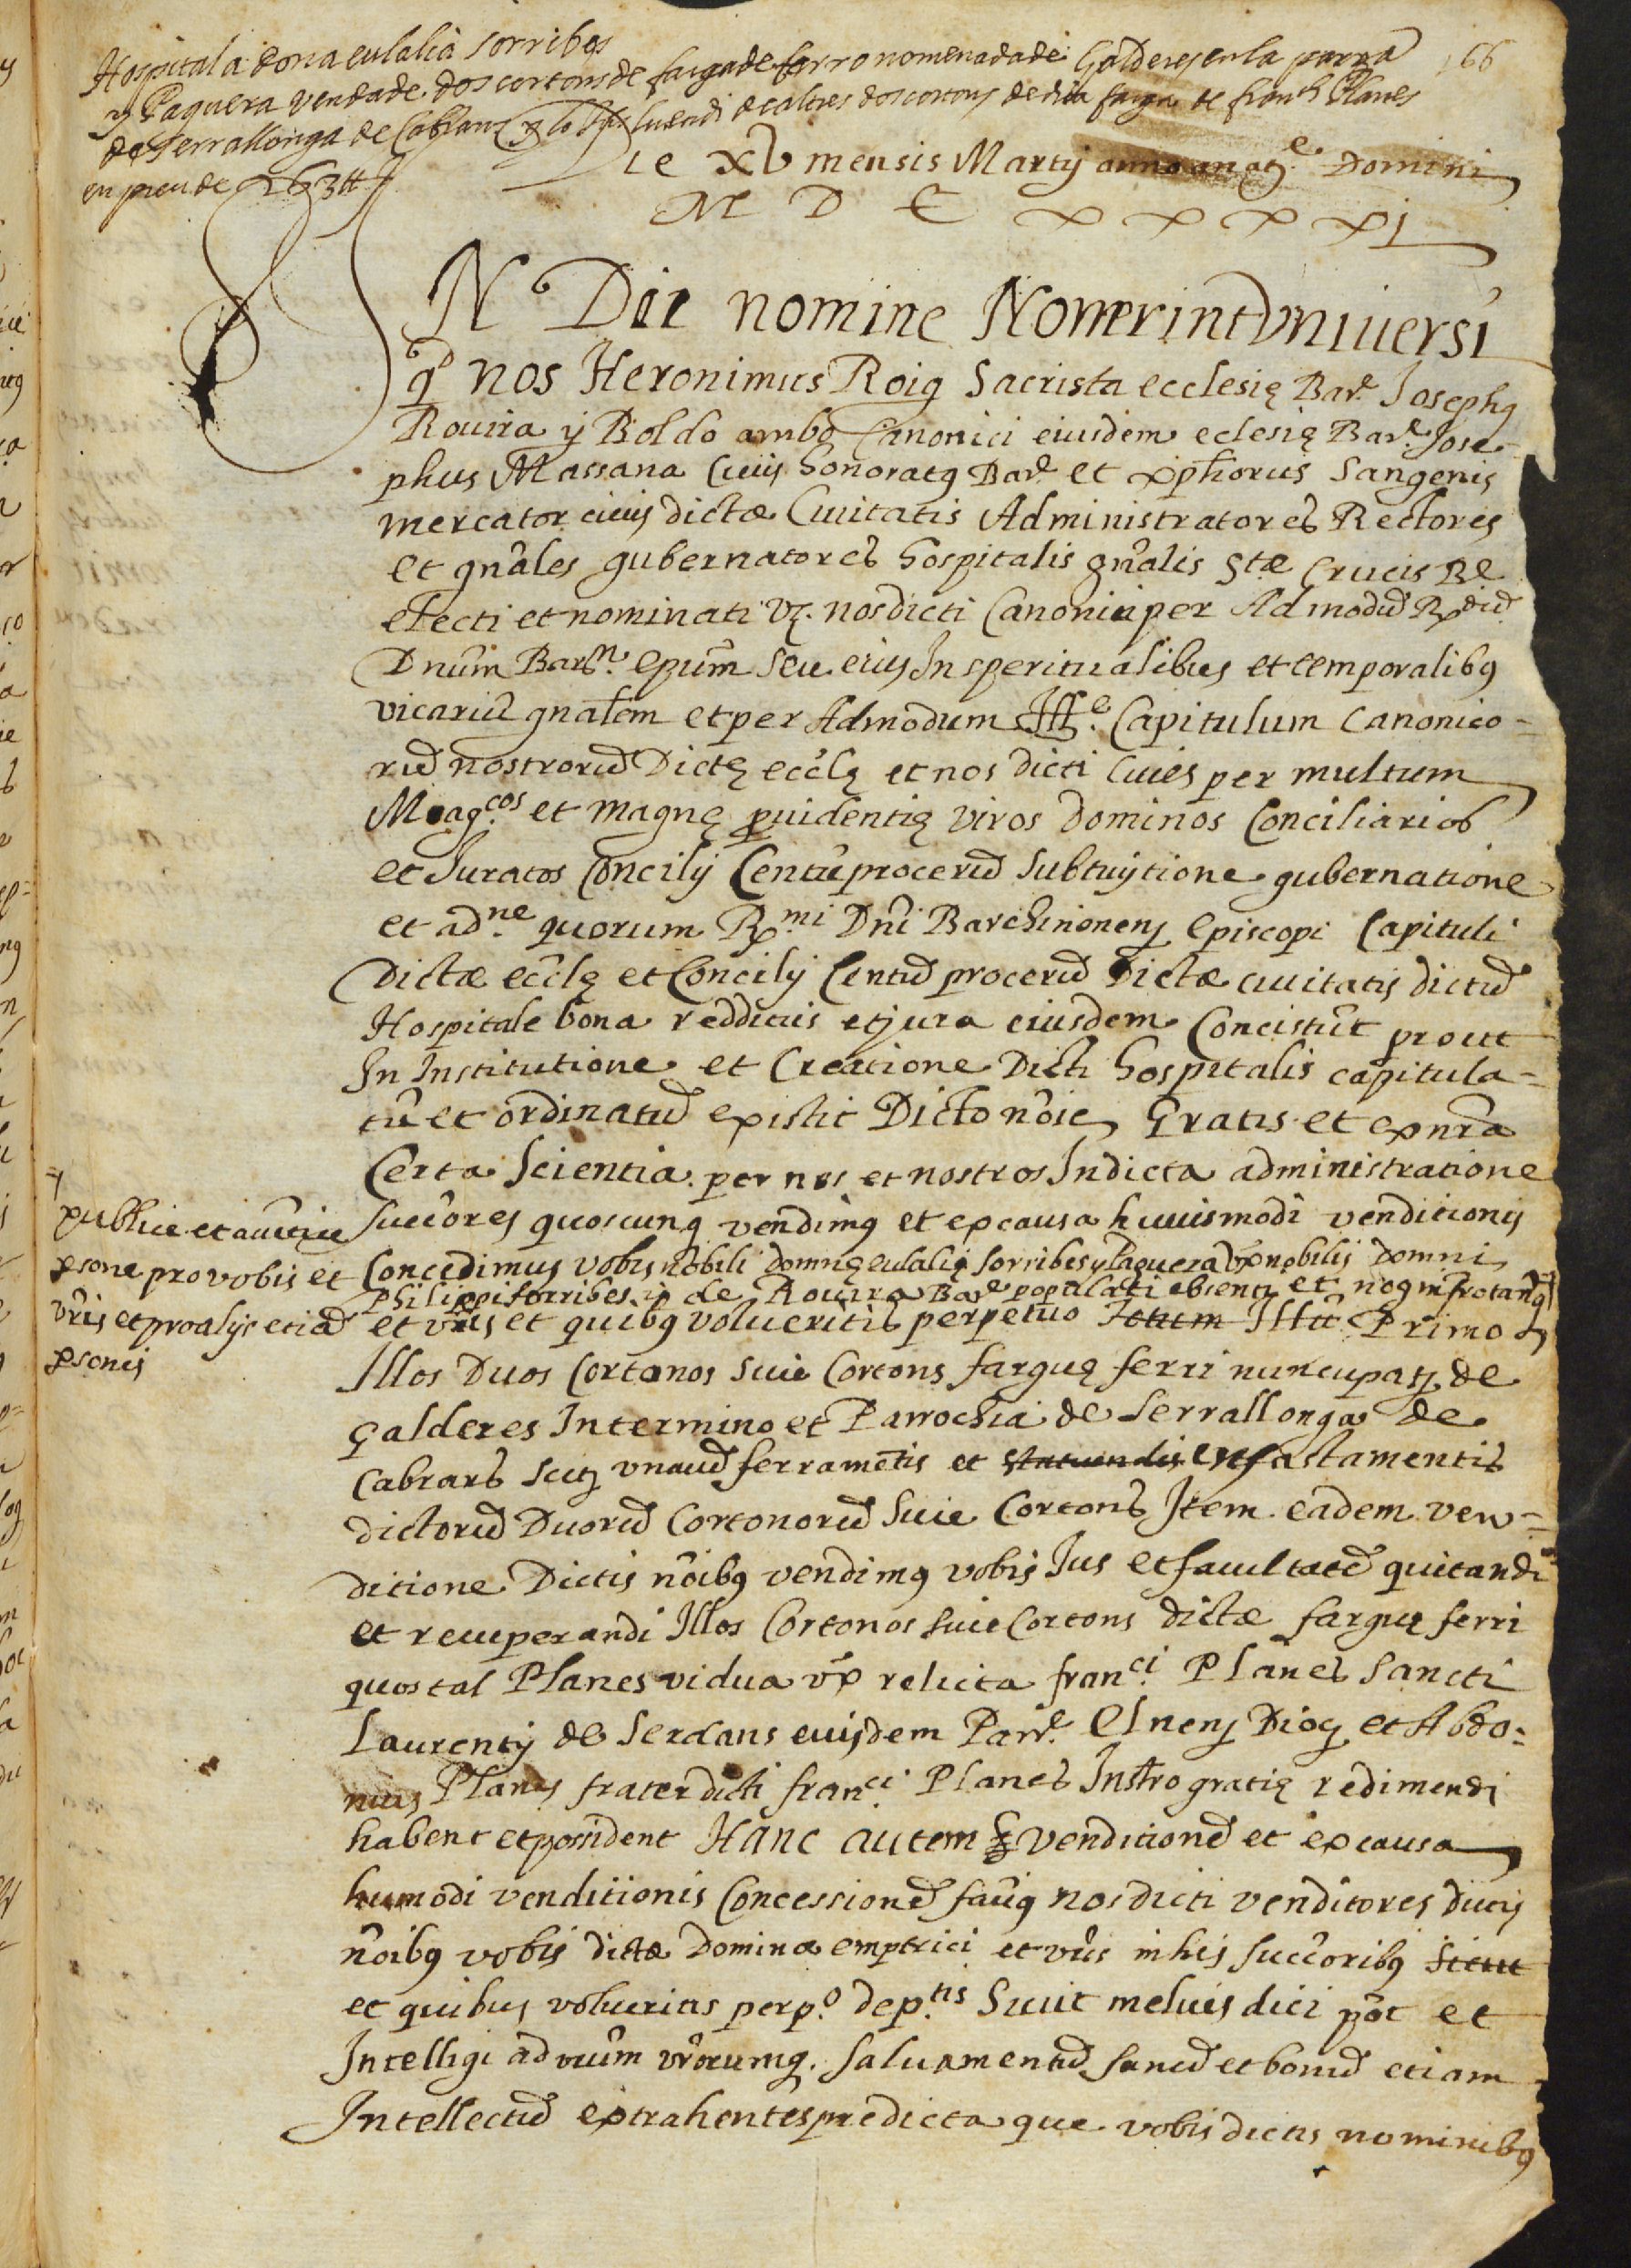 66
Hospital a dona eulalia sorribes
y Paguera venda de dos cortons de farga de ferro nomenada de Galderes en la parra
de Serrallonga de Cabrans y lo luendi de altres dos cortons de dita farga de franch Planes
en preu de 263 ℔
Die xv mensis Martij anno a natē Domini
M D C x x x xi
IN Dei nomine Noverint vniuersi
qd nos Heronimus Roig Sacrista ecclesię Barē Josephus
Rouira y Boldo ambo Canonici eiusdem eclesię Barē Jose-
phus Massana Ciuis honoratus Barē et xp̄horus Sangenis
mercator ciuis dictæ Ciuitatis Administratores Rectores
et gn̄ales gubernatores hospitalis gn̄alis Stæ Crucis Bē
electi et nominati vz. nos dicti Canonici per Admodū Rdū
Dnūm Barn. epūm seu eius In speritualibus et temporalibus
vicariū gnalem et per Admodum Ille. Capitulum Canonico-
rū nostrorū Dictę ecclę et nos dicti Ciues per multum
Magcos et magnę prouidentię viros dominos Conciliarios
et Juratos Concilij Centū procerū sub tuytione gubernatione
et adne quorum Rmi Dni Barchinonens Episcopi Capituli
Dictæ ecclę et Concilij Centū procerū Dictæ ciuitatis dictū
Hospitale bona redditus et jura eiusdem Concistūt prout
In Institutione et Creatione Dicti hospitalis capitula-
tū et ordinatū existit Dicto nōie Gratis et ex nrā
Certa Scientia per nos et nostros In dicta administratione
succores quoscunq vendimus et ex causa huiusmodi venditionis
Concedimus vobis nobili domnę eulalię Sorribes y Paguera vx nobilis Domni
Philippi sorribes y de Rouira Barē populati absenti et nog infrotang
et vris et quibus volueritis perpetuo Totum Illū Primo
publice et auctice
psone pro vobis et
vris et pro alijs etiā
psonis
Illos Duos Cortonos siue Cortons fargue ferri nuncupatę de
galderes In termino et Parrochia de Serrallonga de
Cabrars sitę vna cū ferramētis et statuendis exfastamentis
dictorū Duorū Cortonorū Siue Cortons Item eadem ven-
ditione Dictis nōibus vendimus vobis Jus et facultatē quitandi
et recuperandi Illos Cortonos siue Cortons dictæ fargue ferri
quos tal Planes vidua vx relicta franci Planes Sancti
Laurentij de Serdans euisdem Parrē Elnens Diog et Abdo-
nius Planes frater dicti franci Planes Instro gratię redimendi
habent et possident Hanc autem venditionē et ex causa
humodi venditionis Concessionē faciūs nos dicti venditores dictis
nōibus vobis dictæ Dominæ emptrici et vris in his succoribus Sicut
et quibus volueritis perpo deptis Sicut melius dici pōt et
Intelligi ad vrūm vrorumq. saluamentū sanū et bonū etiam
Intellectū extrahentes predicta que vobis dictis nominibus